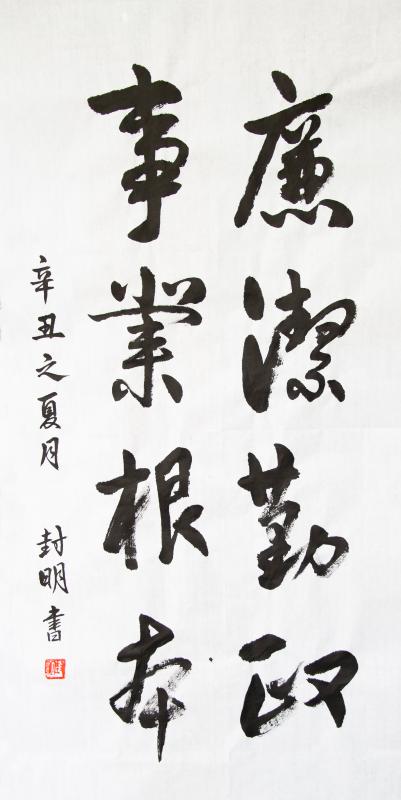 廉潔勤政
事業根本
辛丑之夏月 封明書